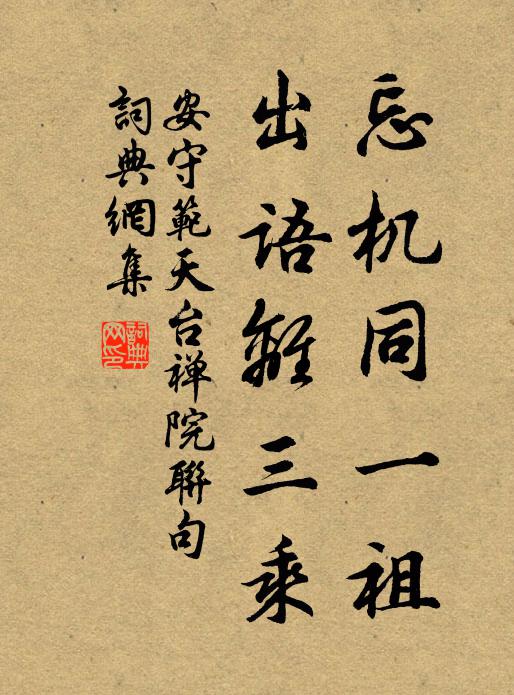 忘机同一祖
出语離三乘
安守範天台禅院聯句
詞典網集
詞典网印